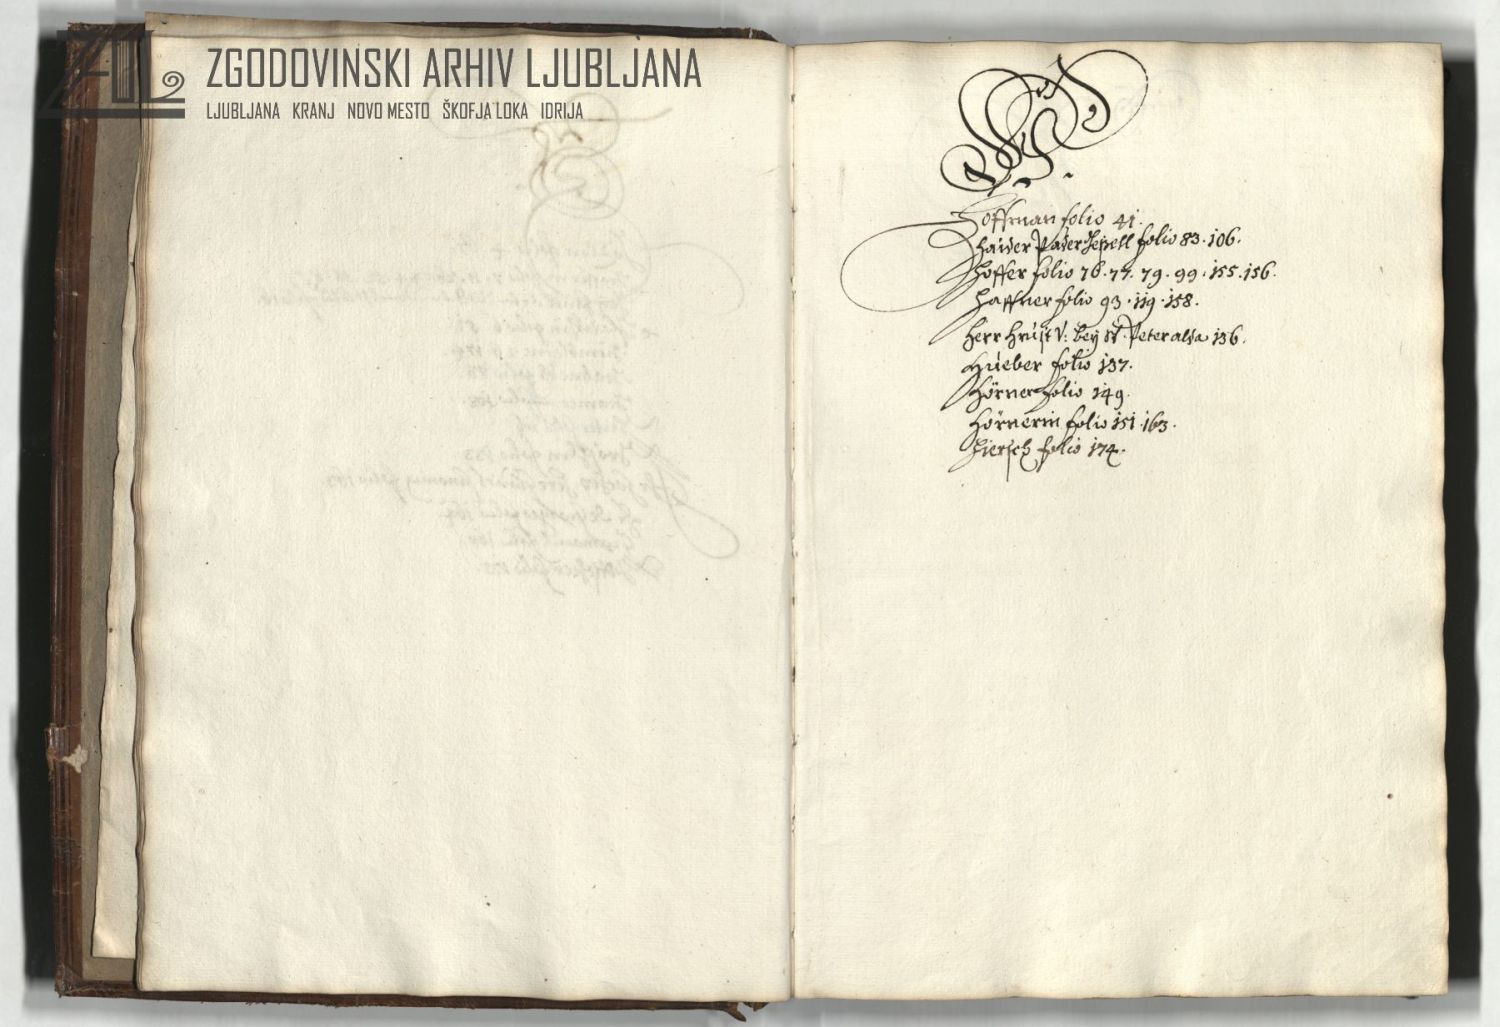 ZGODOVINSKI ARHIV LJUBLJANA
LJUBLJANA KRANJ NOVO MESTO ŠKOFJA LOKA IDRIJA
H
Hoffman folio 41.
Haider Pader folio 83. 106.
Hoffer folio 76. 77. 79. 99. 155. 156.
Haffner folio 93. 119. 158.
Herr V: bey St. Peter alda 136.
Hueber folio 137.
Hörner folio 149.
Hörnerin folio 151. 163.
Hiersch folio 174.